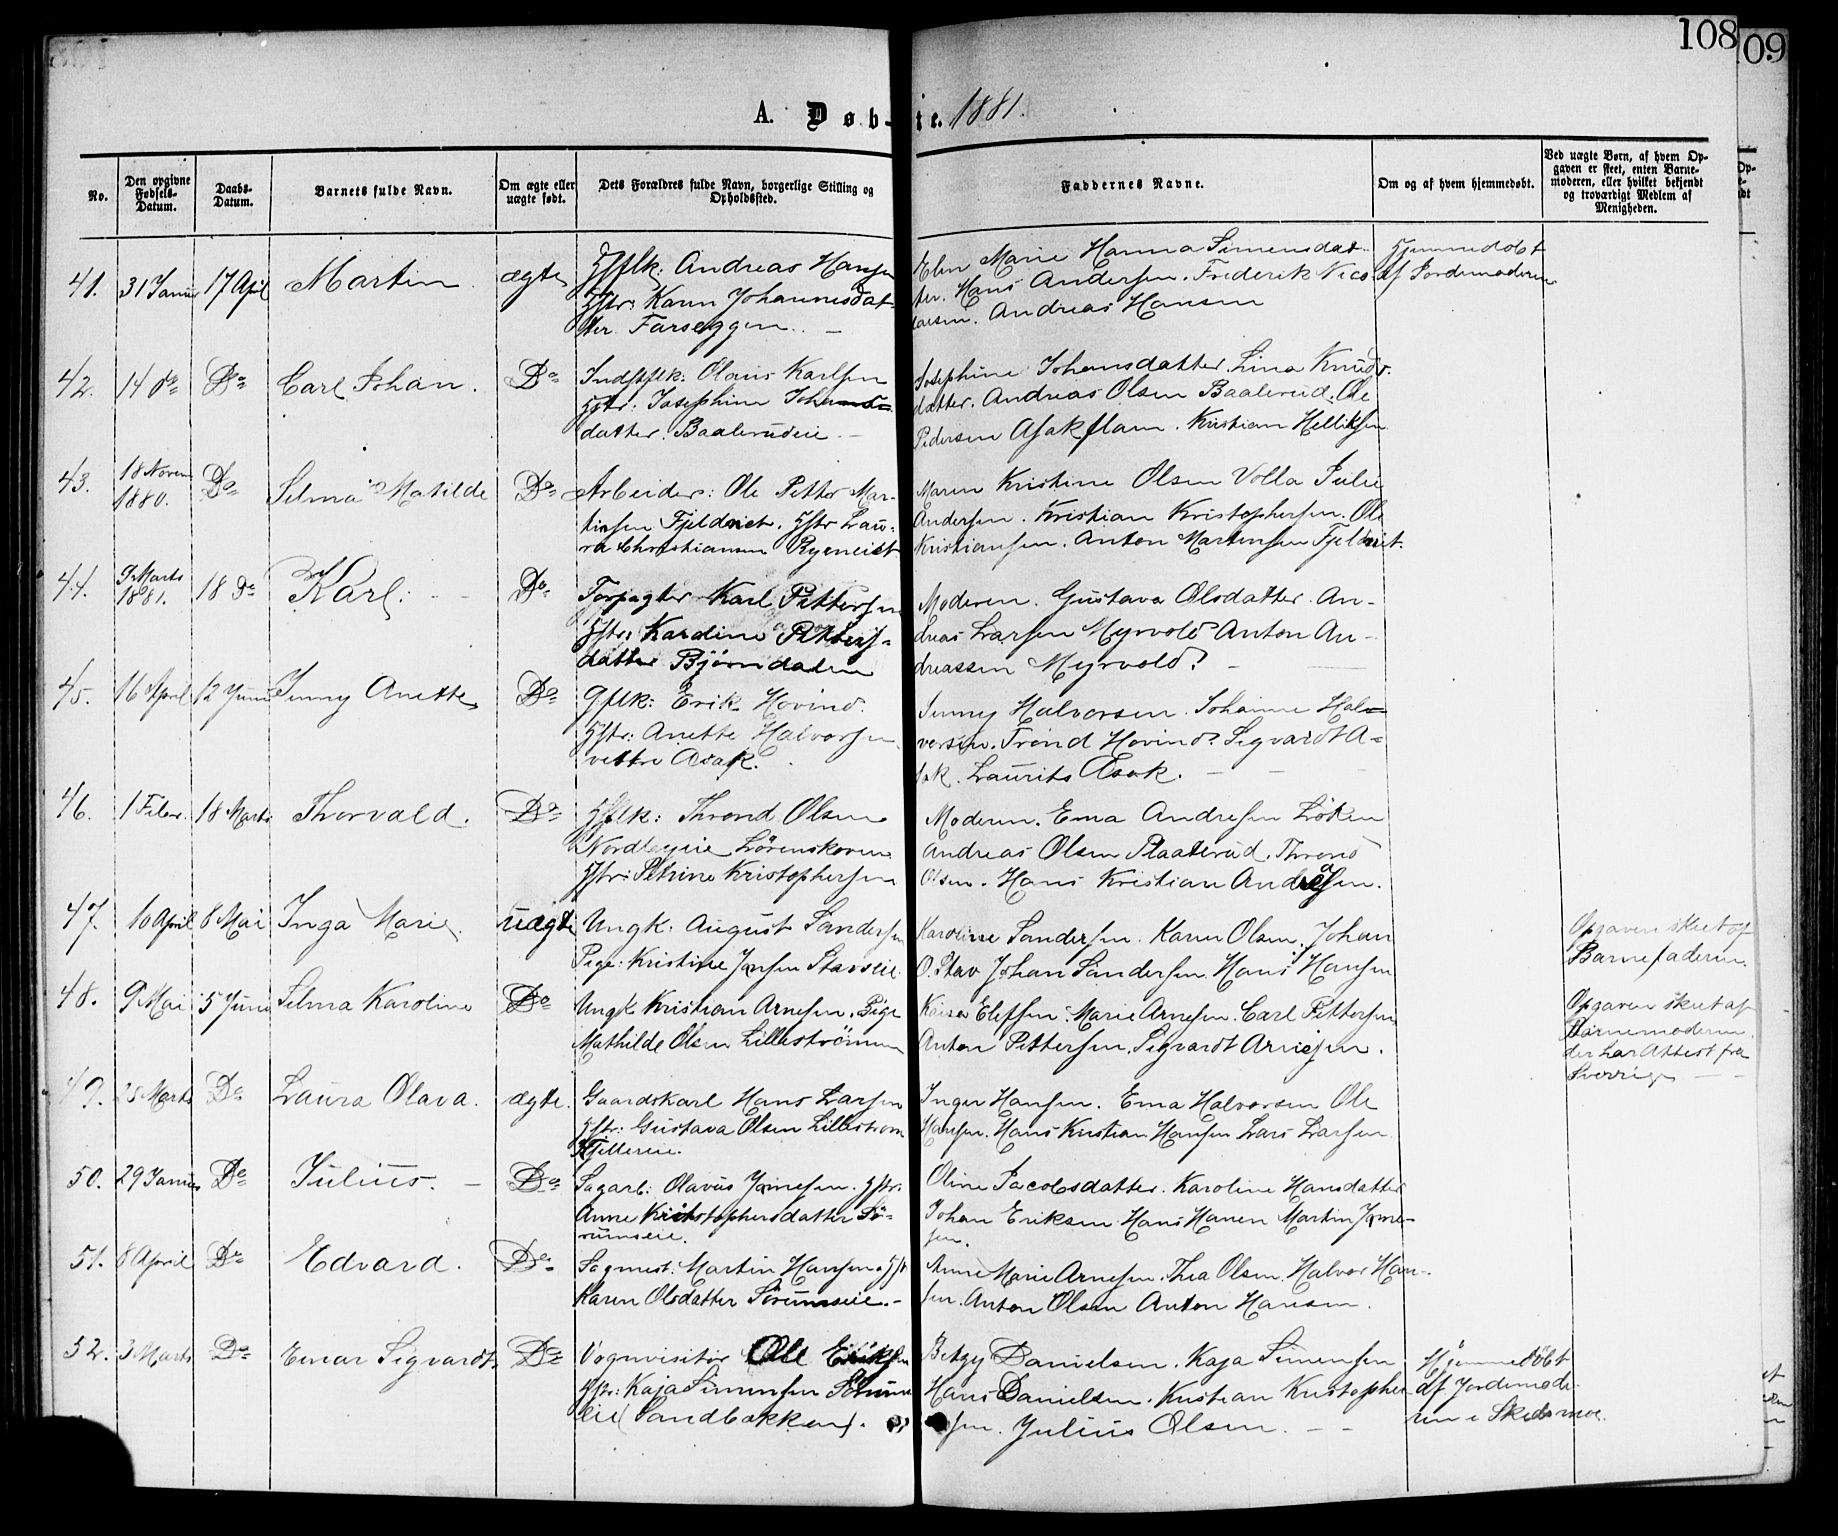 108
09
A. Døb-te. 1881.
No.
Den opgivne Fødsels-Datum.
Daabs-Datum.
Barnets fulde Navn.
Om ægte eller uægte født.
Dets Forældres fulde Navn, borgerlige Stilling og Opholdssted.
Faddernes Navne.
Om og af hvem hjemmedøbt.
Ved uægte Børn, af hvem Opgaven er skeet, enten Barnemoderen, eller hvilket bekjendt og troværdigt Medlem af Menigheden.
41. 31 Januar 17 April Martin ægte
Gflk: Andreas Hansen
Hstr: Karen Johannesdat-
ter Farseggen. –
Elen Marie Hanna Simensdat-
ter. Hans Andersen. Frederik Nico-
laisen. Andreas Hansen
Hjemmedøbt
af Jordemoderen
42. 14 do Do Carl Johan. Do
Indstflk: Olaus Karlsen
Hstr: Josephine Johans-
datter. Baalerudeie –
Josephine Johansdatter. Lina Knuds-
datter. Andreas Olsen Baalerud. Ole
Pedersen Asak Kristian Melliksen
43. 18 Novem 1880. Do Selma Matilde Do
Arbeider: Ole Petter Mar-
tinsen Fjeldviet. Hstr Lau-
ra Christiansen Ryeneiet
Maren Kristine Olsen Volla Julie
Andersen. Kristian Kristophersen. Ole
Kristiansen. Anton Martinsen Fjeldviet.
44. 9 Marts 1881. 18 Do Karl. Do
Forpagter Karl Pettersen
Hstr: Kardine Petters-
datter Bjørndalen
Moderen. Gustava Olsdatter. An-
dreas Larsen Myrvold Anton An-
dreassen Myrvold. –
45. 16 April 12 Juni Jenny Anette Do
Gflk: Erik Hovind.
Hstr: Anette Halvorsen
vestre Asak.
Jenny Halvorsen. Johanne Hal-
vorsen. Trond Hovind. Sigvardt A-
sak. Laurits Asak. –
46. 1 Febr. 18 Marts Thorvald. Do
Gflk: Thrond Olsen
Nordbyeie Lørenskoven
Hstr: Petrine Kristophersen
Moderen. Ema Andresen Løken
Andreas Olsen Staaterud. Thrond
Olsen. Hans Kristian Andresen.
47. 10 April 8 Mai Inga Marie. uægte
Ungk: August Sandersen
Pige: Kristine Jonsen Stavseie
Karoline Sandersen. Karen Olsen. Johan
O. Stav Johan Sandersen. Hans Hansen
Opgaven skeet af
Barnefaderen.
48. 9 Mai 5 Juni Selma Karoline Do
Ungk Kristian Arnesen. Pige
Mathilde Olsen Lillestrømmen
Kaisa Elefsen. Marie Arnesen. Carl Pettersen
Anton Pettersen. Sigvardt Arnesen.
Opgaven skeet af
Barnemoderen
der har Attest fra
Sverrig –
49. 25 Marts Do Laura Olava. ægte.
Gaardskarl Hans Larsen
Hstr: Gustava Olsen Lillestrøm
Kjellereie.
Inger Hansen. Ema Halvorsen Ole
Hansen. Hans Kristian Hansen Lars Larsen
50. 29 Januar Do Julius. – Do
Sagarb: Olavus Jensen. Hstr:
Anne Kristophersdatter Sø-
rumseie.
Oline Jacobsdatter. Karoline Hansdatter
Johan Eriksen Hans Hanen Martin
sen.
51. 8 April Do Edvard. Do
Sagmest: Martin Hansen. Hstr
Karen Olsdatter Sørumseie. –
Anne Marie Arnesen. Thea Olsen. Halvor Han-
sen. Anton Olsen Anton Hansen.
52. 3 Marts Do Einar Sigvardt Do
Vognvisitør Ole Eriksen
Hstr: Kaja Simensen Sørums-
eie (Sandbakken).
Betzy Danielsen. Kaja Simensen
Hans Danielsen. Kristian Kristopher-
sen. Julius Olsen. –
Hjemmedøbt
af Jordemode-
ren i Skedsmoe.